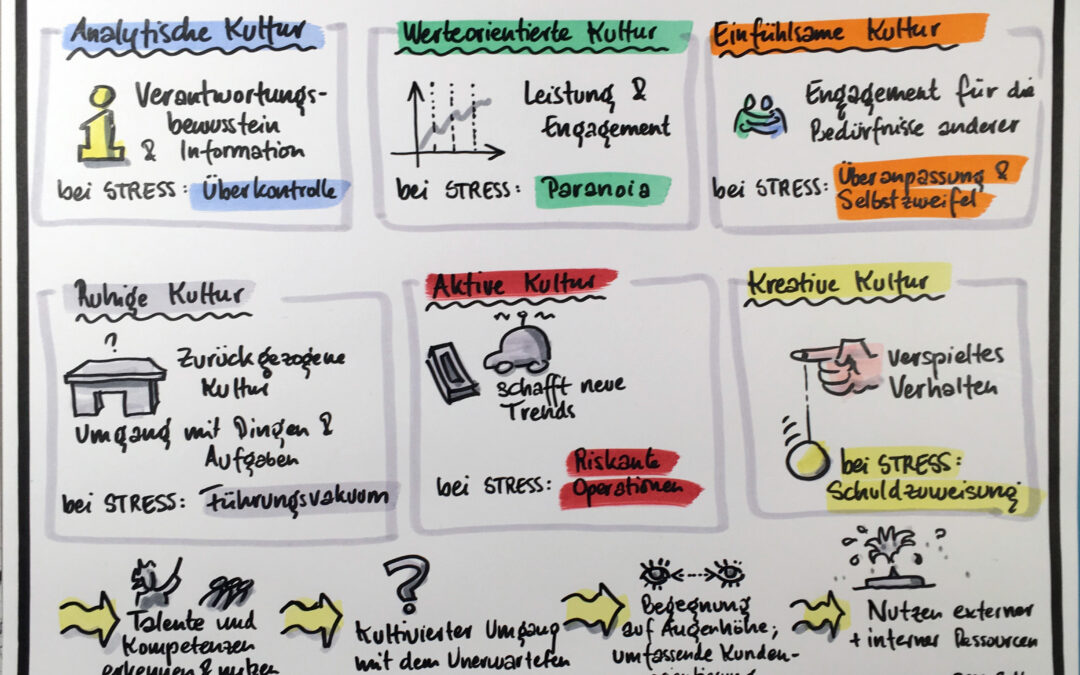 Analytische Kultur
Verantwortungs-
bewusstein
& Information
bei STRESS: Überkontrolle
Werteorientierte Kultur
Leistung &
Engagement
bei STRESS: Paranoia
Einfühlsame Kultur
Engagement für die
Bedürfnisse anderer
bei STRESS: Überanpassung &
Selbstzweifel
Ruhige Kultur
?
Zurückgezogene
Kultur
Umgang mit Dingen &
Aufgaben
bei STRESS: Führungsvakuum
Aktive Kultur
schafft neue
Trends
bei STRESS: Riskante
Operationen
Kreative Kultur
verspieltes
Verhalten
bei STRESS:
Schuldzuweisung
Talente und
Kompetenzen
erkennen & nutzen
?
Kultivierter Umgang
mit dem Unerwarteten
Begegnung
auf Augenhöhe;
umfassende Kunden-
orientierung
Nutzen externer
+ interner Ressourcen